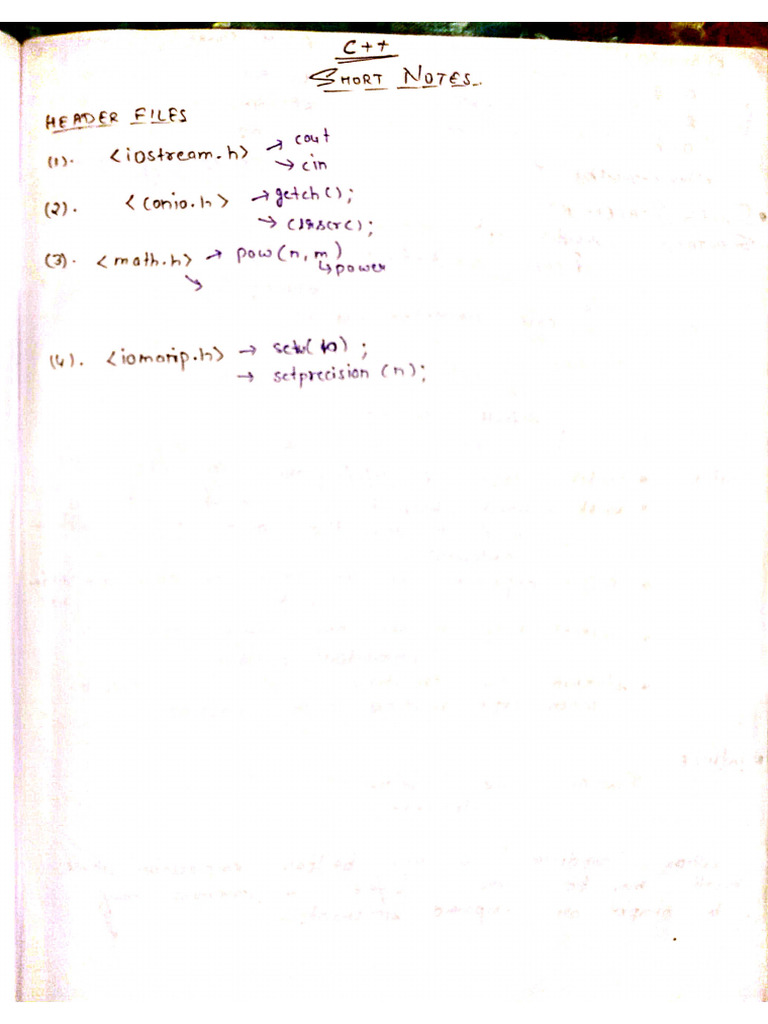 C++
SHORT NOTES
HEADER FILES
(1). <iostream.h> → cout
→ cin
(2). <conio.h> → getch();
→
(3). <math.h> → pow(n, m)
↳ power
↘
(4). <iomanip.h> → setw( );
→ setprecision (n);